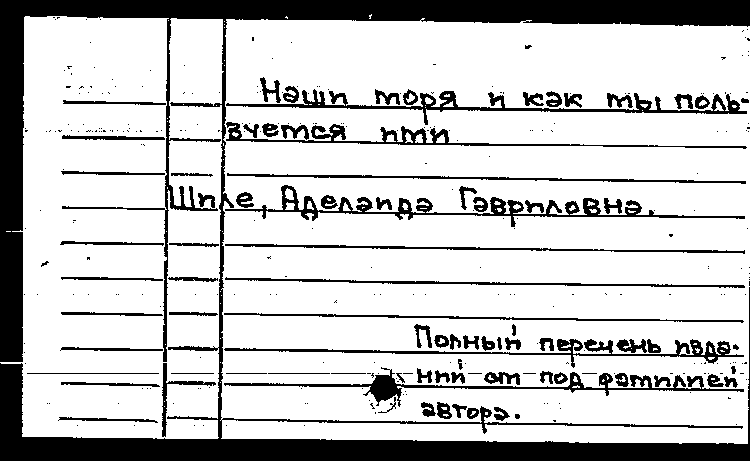 Наши моря и как мы поль-
зуемся ими
Шиле, Аделаида Гавриловна.
Полный перечень изда-
ний см под фамилией
автора.